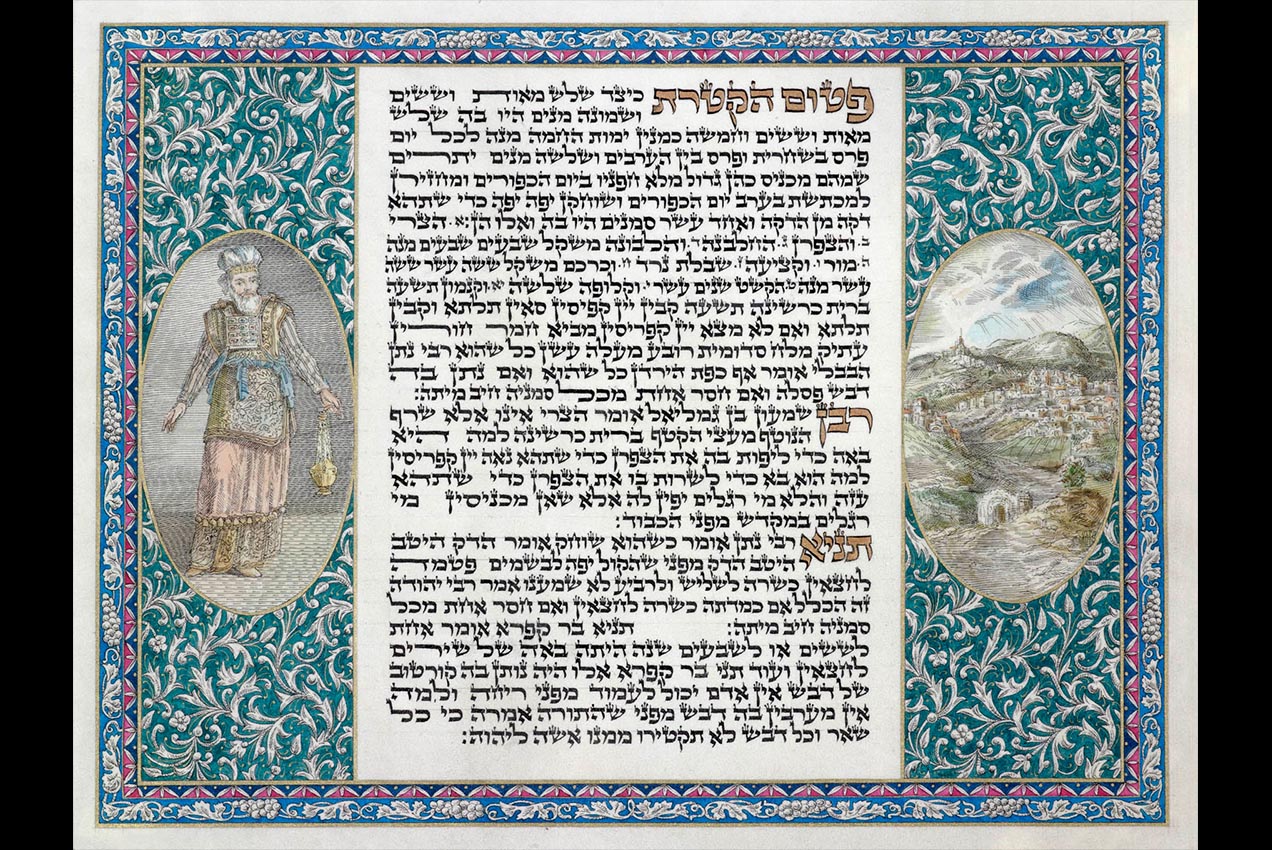 פטום הקטרת כיצד שלש מאות וששים
ושמונה מנים היו בה שלש
מאות וששים וחמשה כמנין ימות החמה מנה לכל יום
פרס בשחרית ופרס בין הערבים ושלשה מנים יתרים
שמהם מכניס כהן גדול מלא חפניו ביום הכפורים ומחזירן
למכתשת בערב יום הכפורים ושוחקן יפה יפה כדי שתהא
דקה מן הדקה ואחד עשר סמנים היו בה ואלו הן: א. הצרי
ב. והצפרן ג. החלבנה ד. והלבונה משקל שבעים שבעים מנה
ה. מור ו. וקציעה ז. שבלת נרד ח. וכרכם משקל ששה עשר ששה
עשר מנה ט. הקשט שנים עשר י. וקלופה שלשה יא. וקנמון תשעה
ברית כרשינה תשעה קבין יין קפריסין סאין תלתא וקבין
תלתא ואם לא מצא יין קפריסין מביא חמר חורין
עתיק מלח סדומית רובע מעלה עשן כל שהוא רבי נתן
הבבלי אומר אף כפת הירדן כל שהוא ואם נתן בה
דבש פסלה ואם חסר אחת מכל סמניה חיב מיתה:
רבן שמעון בן גמליאל אומר הצרי אינו אלא שרף
הנוטף מעצי הקטף ברית כרשינה למה היא
באה כדי ליפות בה את הצפרן כדי שתהא נאה יין קפריסין
למה הוא בא כדי לשרות בו את הצפרן כדי שתהא
עזה והלא מי רגלים יפין לה אלא שאין מכניסין מי
רגלים במקדש מפני הכבוד:
תניא רבי נתן אומר כשהוא שוחק אומר הדק היטב
היטב הדק מפני שהקול יפה לבשמים פטמה
לחצאין כשרה לשליש ולרביע לא שמענו אמר רבי יהודה
זה הכלל אם כמדתה כשרה לחצאין ואם חסר אחת מכל
סמניה חיב מיתה: תניא בר קפרא אומר אחת
לששים או לשבעים שנה היתה באה של שירים
לחצאין ועוד תני בר קפרא אלו היה נותן בה קורטוב
של דבש אין אדם יכול לעמוד מפני ריחה ולמה
אין מערבין בה דבש מפני שהתורה אמרה כי כל
שאר וכל דבש לא תקטירו ממנו אשה ליהוה: